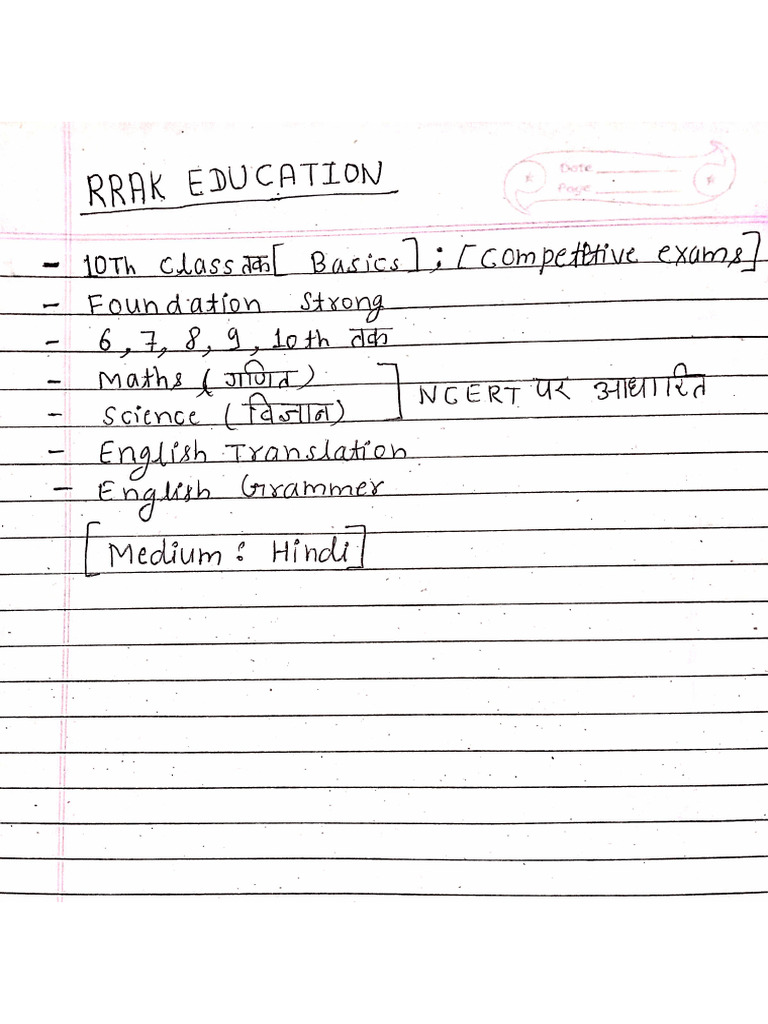 RRAK EDUCATION
Date
Page
- 10Th Class तक [Basics] ; [Competitive exams]
- Foundation Strong
- 6, 7, 8, 9, 10th तक
- Maths (गणित)
- Science (विज्ञान)
] NCERT पर आधारित
- English Translation
- English Grammer
[Medium : Hindi]